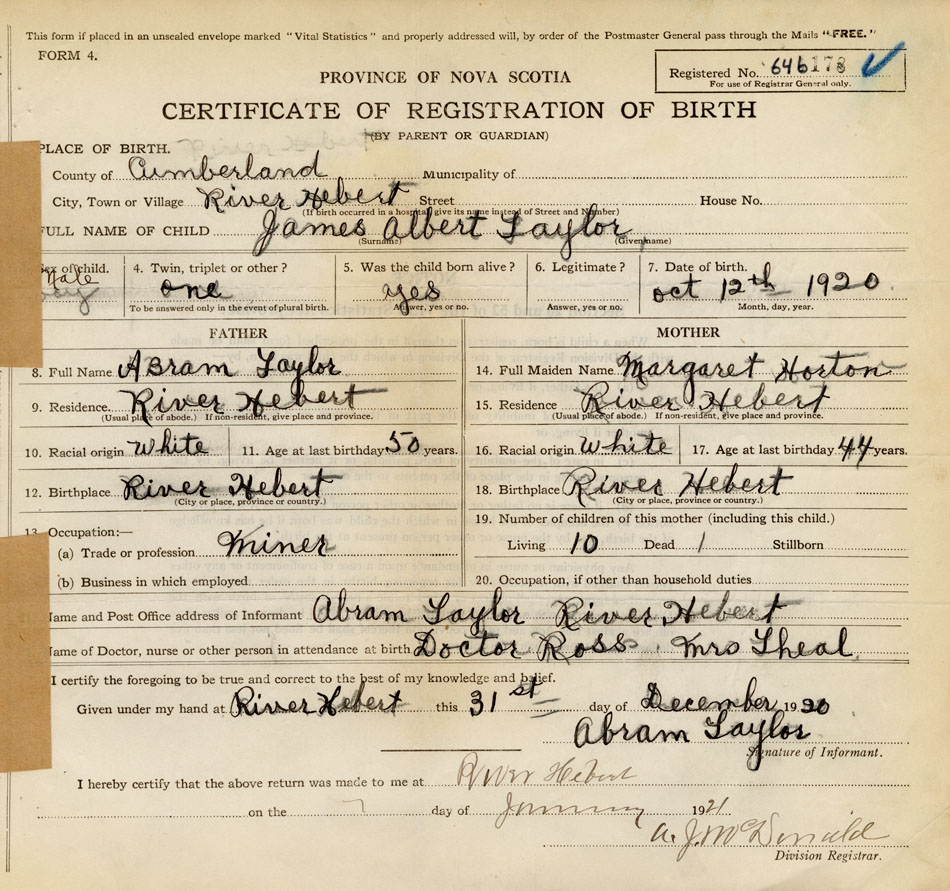 This form if placed in an unsealed envelope marked "Vital Statistics" and properly addressed will, by order of the Postmaster General pass through the Mails "FREE."
FORM 4.
Registered No. 646178
For use of Registrar General only.
PROVINCE OF NOVA SCOTIA
CERTIFICATE OF REGISTRATION OF BIRTH
(BY PARENT OR GUARDIAN)
PLACE OF BIRTH. River Hebert
County of Cumberland Municipality of
City, Town or Village River Hebert Street House No.
(If birth occurred in a hospital give its name instead of Street and Number)
FULL NAME OF CHILD James Albert Taylor
(Surname) (Given name)
Sex of child. 4. Twin, triplet or other? 5. Was the child born alive? 6. Legitimate? 7. Date of birth.
Male
boy one yes oct 12th 1920
To be answered only in the event of plural birth. Answer, yes or no. Answer, yes or no. Month, day, year.
FATHER MOTHER
8. Full Name Abram Taylor 14. Full Maiden Name Margaret Horton
9. Residence. River Hebert 15. Residence River Hebert
(Usual place of abode.) If non-resident, give place and province. (Usual place of abode.) If non-resident, give place and province.
10. Racial origin White 11. Age at last birthday 50 years. 16. Racial origin White 17. Age at last birthday 44 years.
12. Birthplace River Hebert 18. Birthplace River Hebert
(City or place, province or country.) (City or place, province or country.)
13. Occupation:— 19. Number of children of this mother (including this child.)
(a) Trade or profession Miner Living 10 Dead 1 Stillborn
(b) Business in which employed 20. Occupation, if other than household duties
Name and Post Office address of Informant Abram Taylor River Hebert
Name of Doctor, nurse or other person in attendance at birth Doctor Ross. Mrs Theal
I certify the foregoing to be true and correct to the best of my knowledge and belief.
Given under my hand at River Hebert this 31st day of December 1920
Abram Taylor
Signature of Informant.
I hereby certify that the above return was made to me at River Hebert
on the 7 day of January 1921
A. J. McDonald
Division Registrar.